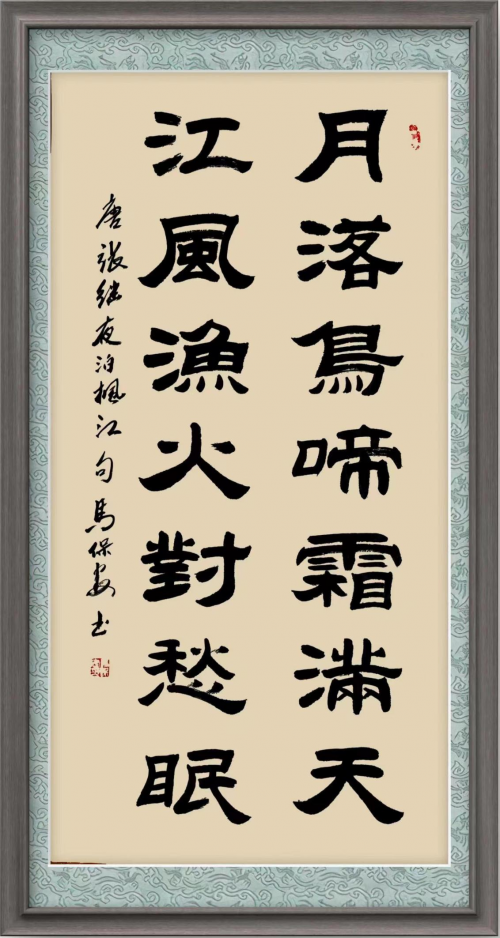 月落烏啼霜滿天
江風漁火對愁眠
唐張继夜泊楓江句馬保安书